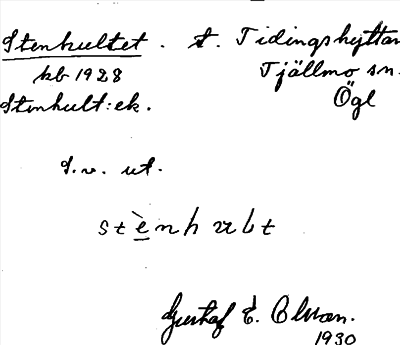 Stenhultet. t. Tidingshyttan
kb 1928 Tjällmo sn.
Stenhult: ek. Ögl
S.v. ut.
stènhult
Gustaf E.
1930